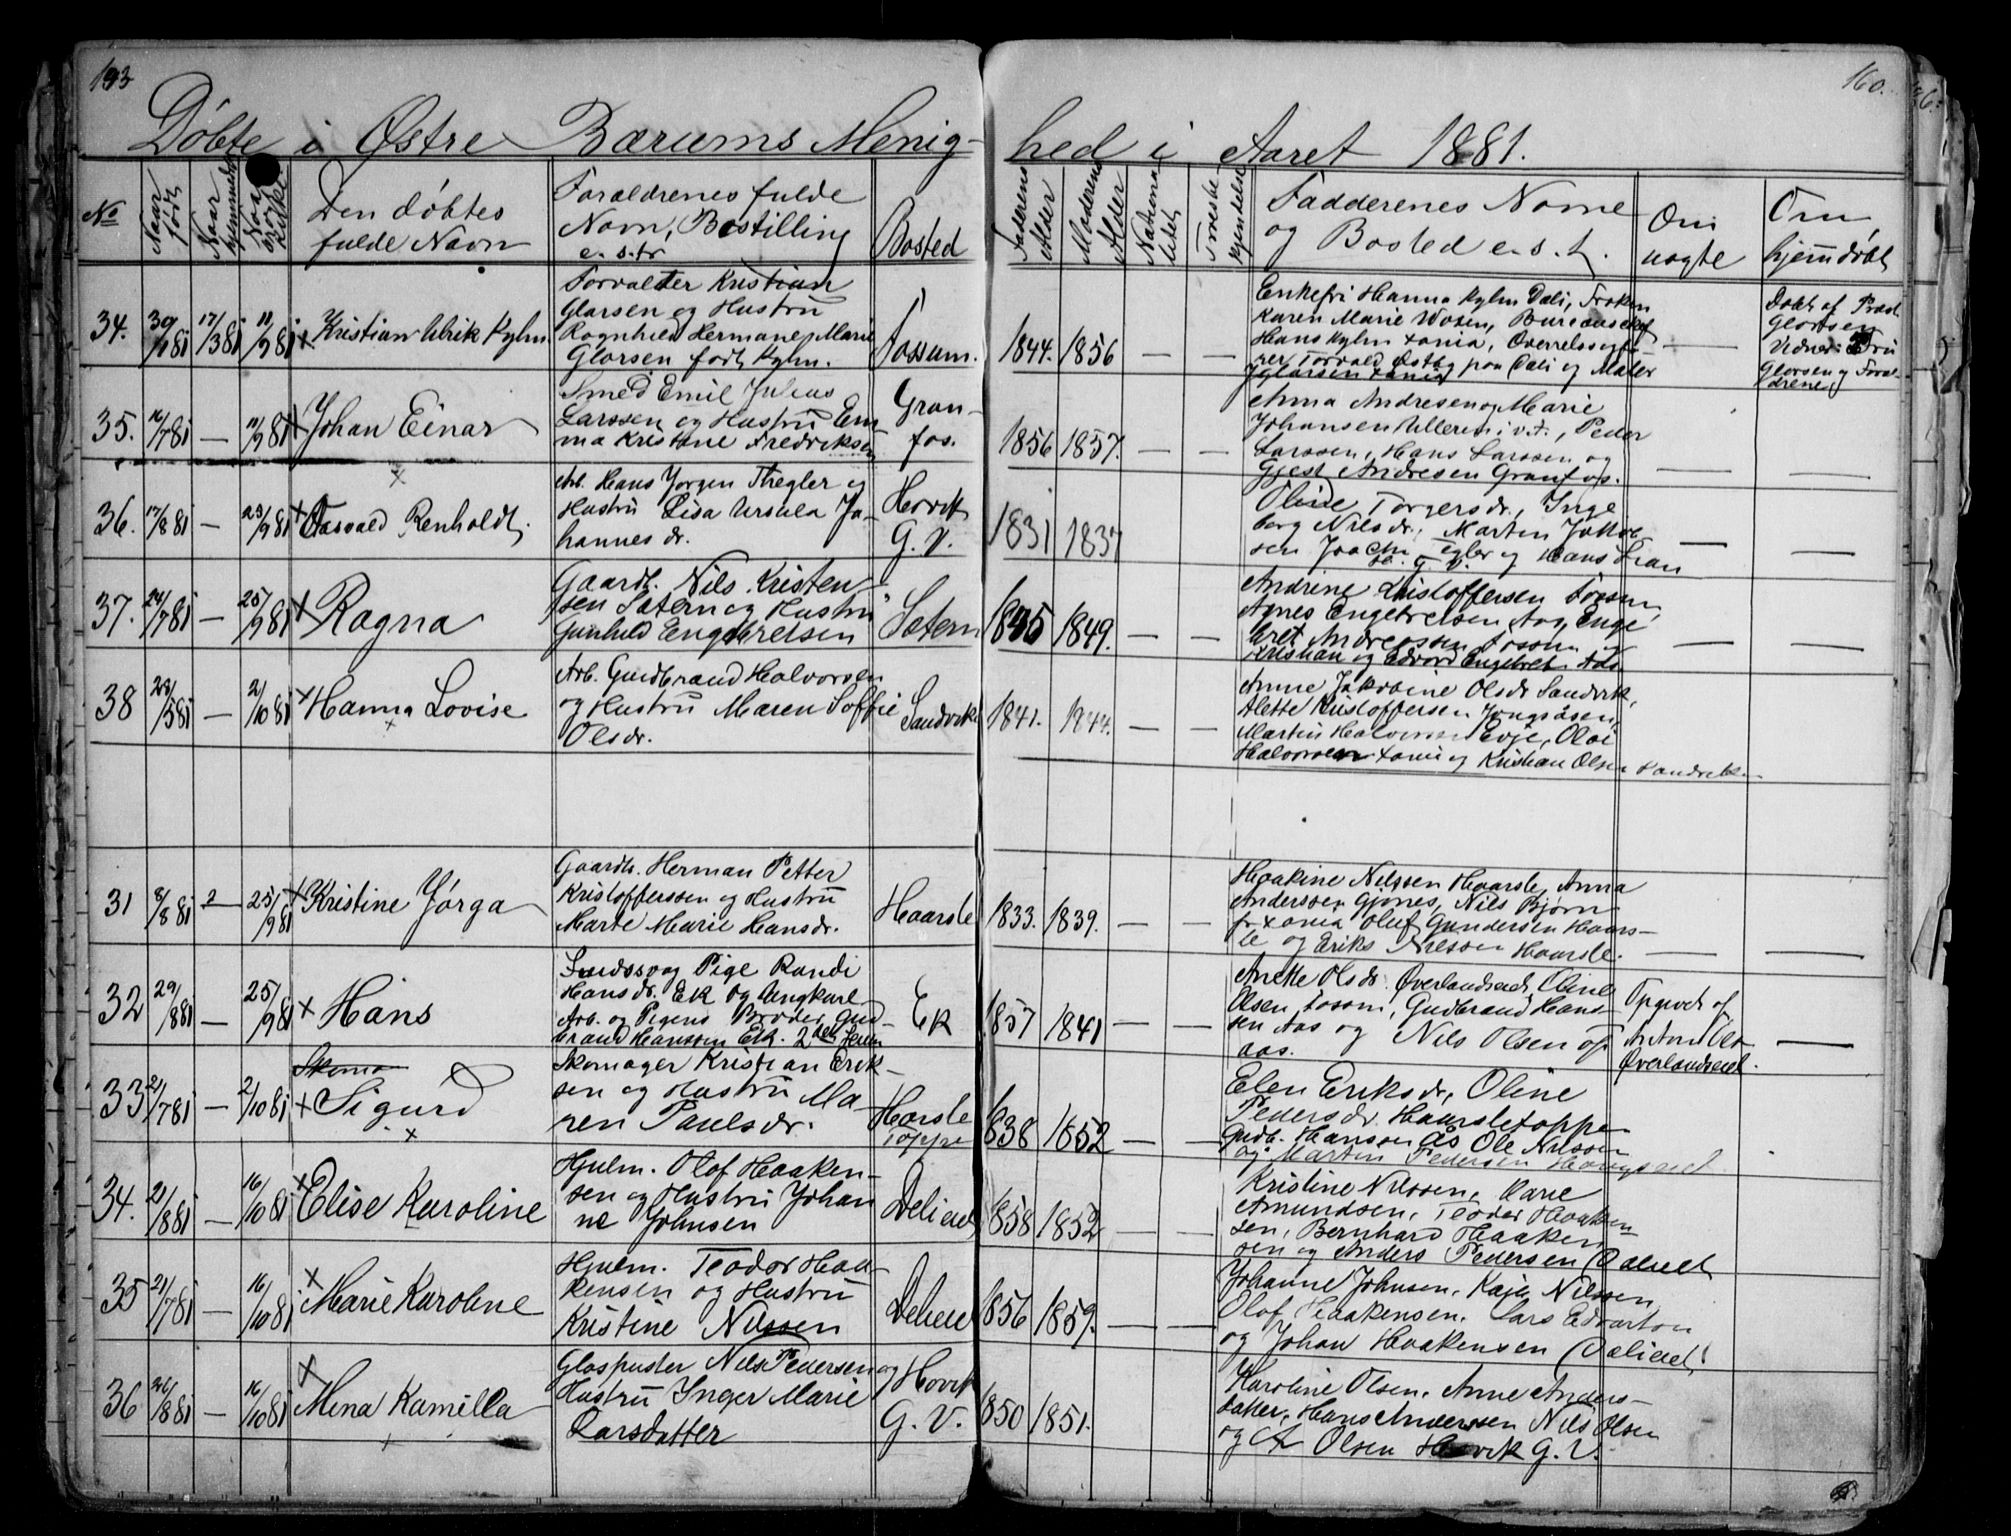 193
160.
Døbte i Østre Bærums Menig-
hed i Aaret 1881.
No
Naar født
Naar hjemmedøbt
Naar i Kirke
Den døbtes
fulde Navn
Forældrenes fulde
Navn, Bestilling
e. s. fr.
Bosted
Faderens Alder
Moderens Alder
Nationalitet
Troesbekjendelse
Fadderenes Navne
og Bosted e. s. fr.
Om
uægte
Om
hjemdøbt
34. 30/1 81 17/3 81 11/9 81 Kristian Ulrik Kylm
Forvalter Kristian
Glørsen og Hustru
Ragnhild Hermane Marie
Glørsen født Kylm.
Fossum.
1844. 1856 — —
Enkefru Hanna Kylm Dæli, Frøken
Karen Marie
Hans Kylm Xania,
Torvald Østby paa Dæli og Maler
Glørsen Xania
—
Døbt af Præst
Glørsen
Vidner: Fru
Glørsen og Foræl-
drene
35. 16/7 81 — 11/9 81 Johan Einar
Smed Emil Julius
Larssen og Hustru Em-
ma Kristine Fredriksen
Gran-
fos.
1856 1857. — —
Anna Andresen og Marie
Johansen Ulleren i v. A., Peder
Larssen, Hans Larssen og
Gjest Andresen Granfos.
— —
36. 17/8 81 — 25/9 81 Osvald Renholdt
Arb. Hans Jørgen Thegler og
Hustru Lisa Ursula Jo-
hannesdr.
Høvik
G. V.
1831 1837
Oline Torgersdr., Inge
borg Nilsdr., Marten Jakob
sen Joachim Tegler og Hans Lian
H. G. V.
— —
37. 24/7 81 — 25/9 81 Ragna
Gaardb. Nils Kristen
sen Sætern og Hustru
Gunhild Engebretsen
Sætern
1845 1849. — —
Andrine Kristoffersen Fossum,
Agnes Engebretsen Aas, Enge
bret Andreassen Fossum og
Kristian og Edvard Engebret. Aas
— —
38 28/5 81 — 2/10 81 Hanna Lovise
Arb. Gudbrand Halvorsen
og Hustru Maren Soffie
Olsdr.
Sandvika
1841. 1844. — —
Anne Jakobine Olsdr Sandvik,
Alette Kristoffersen Jongsåsen,
Martin Halvorsen Evje, Olai
Halvorsen Xania og Kristian Olsen Sandviken
31 8/8 81 2 — 25/9 81 Kristine Jørga
Gaardb. Herman Petter
Kristofferssen og Hustru
Marte Marie Hansdr.
Haarsle
1833. 1839. — —
Haakine Nilssen Haarsle, Anna
Anderssen Gjønes, Nils Bjørn
fr Xania Oluf Gundersen Haars-
le og Eriks Nilssen Haarsle.
— —
32 29/8 81 — 25/9 81 Hans
Pige Randi
Hansdr. Ek og Ungkarl
Arb. og Pigens Broder Gud-
brand Hanssen Ek. 2det Leierm.
Ek
1857 1841 — —
Anne Olsdr. Øverlandseiet, Oline
Olsen Fossum, Gudbrand Hans-
sen Aas og Nils Olsen op
aas.
Opgivet af
Anton Ols
Øverlandseiet.
—
33 21/7 81 — 2/10 81 Sigurd
Skomager Kristian Erik-
sen og Hustru Ma-
ren Paulsdr.
Haarsle
toppe
1838 1852 — —
Elen Eriksdr, Oline
Pedersdr. Haarsletoppen
Gudb. Hanssen Ås Ole Nilssen
og Martin Pedersen Haugseiet
34. 21/8 81 — 16/10 81 Elise Karoline
Hjulm. Olof Haaken-
sen og Hustru Johan
ne Johnsen
Dælieiet
1858 1852 — —
Kristine Nilssen, Karie
Amundsen, Teodor Haaken
sen, Bernhard Haaken
sen og Anders Pedersen Dælieiet
35 21/7 81 — 16/10 81 Marie Karoline
Hjulm. Teodor Haa-
kensen og Hustru
Kristine Nilssen
Dælieiet
1856 1859. — —
Johanne Johnsen, Kaja Nilssen
Olof Haakensen, Lars Edvarton
og Johan Haakensen Dælieiet
36 26/8 81 — 16/10 81 Mena Kamilla
Glaspuster Nils Pedersen og
Hustru Inger Marie
Larsdatter
Høvik
G. V.
1850 1851.
Karoline Olsen, Anne Anders-
datter, Hans Anderssen Nils Olsen
og A Olsen Høvik G. V.